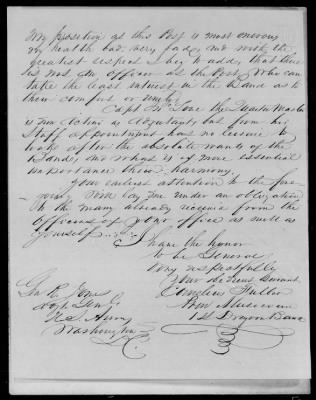 My position at this Post is most onerous
my health bad, very fast, and with the
greatest respect I beg to add, that there
is not an Officer at the Post, who can
take the least interest in the Band as to
their comfort or
Capt the Quarter Master
is now Acting as Adjutant, but from his
Staff appointment has no leisure to
look after the absolute wants of the
Band, and what is of more essential
importance their harmony.
Your earliest attention to the fore
going will lay me under an obligation
to the many already received from the
Officers of your office as well as
yourself
I have the honor
to be General
Very respectfully
Your Servant
Cornelius
Musician
1st Dragoon Band
Jones
Adjt Gen'l
U.S. Army
Washington